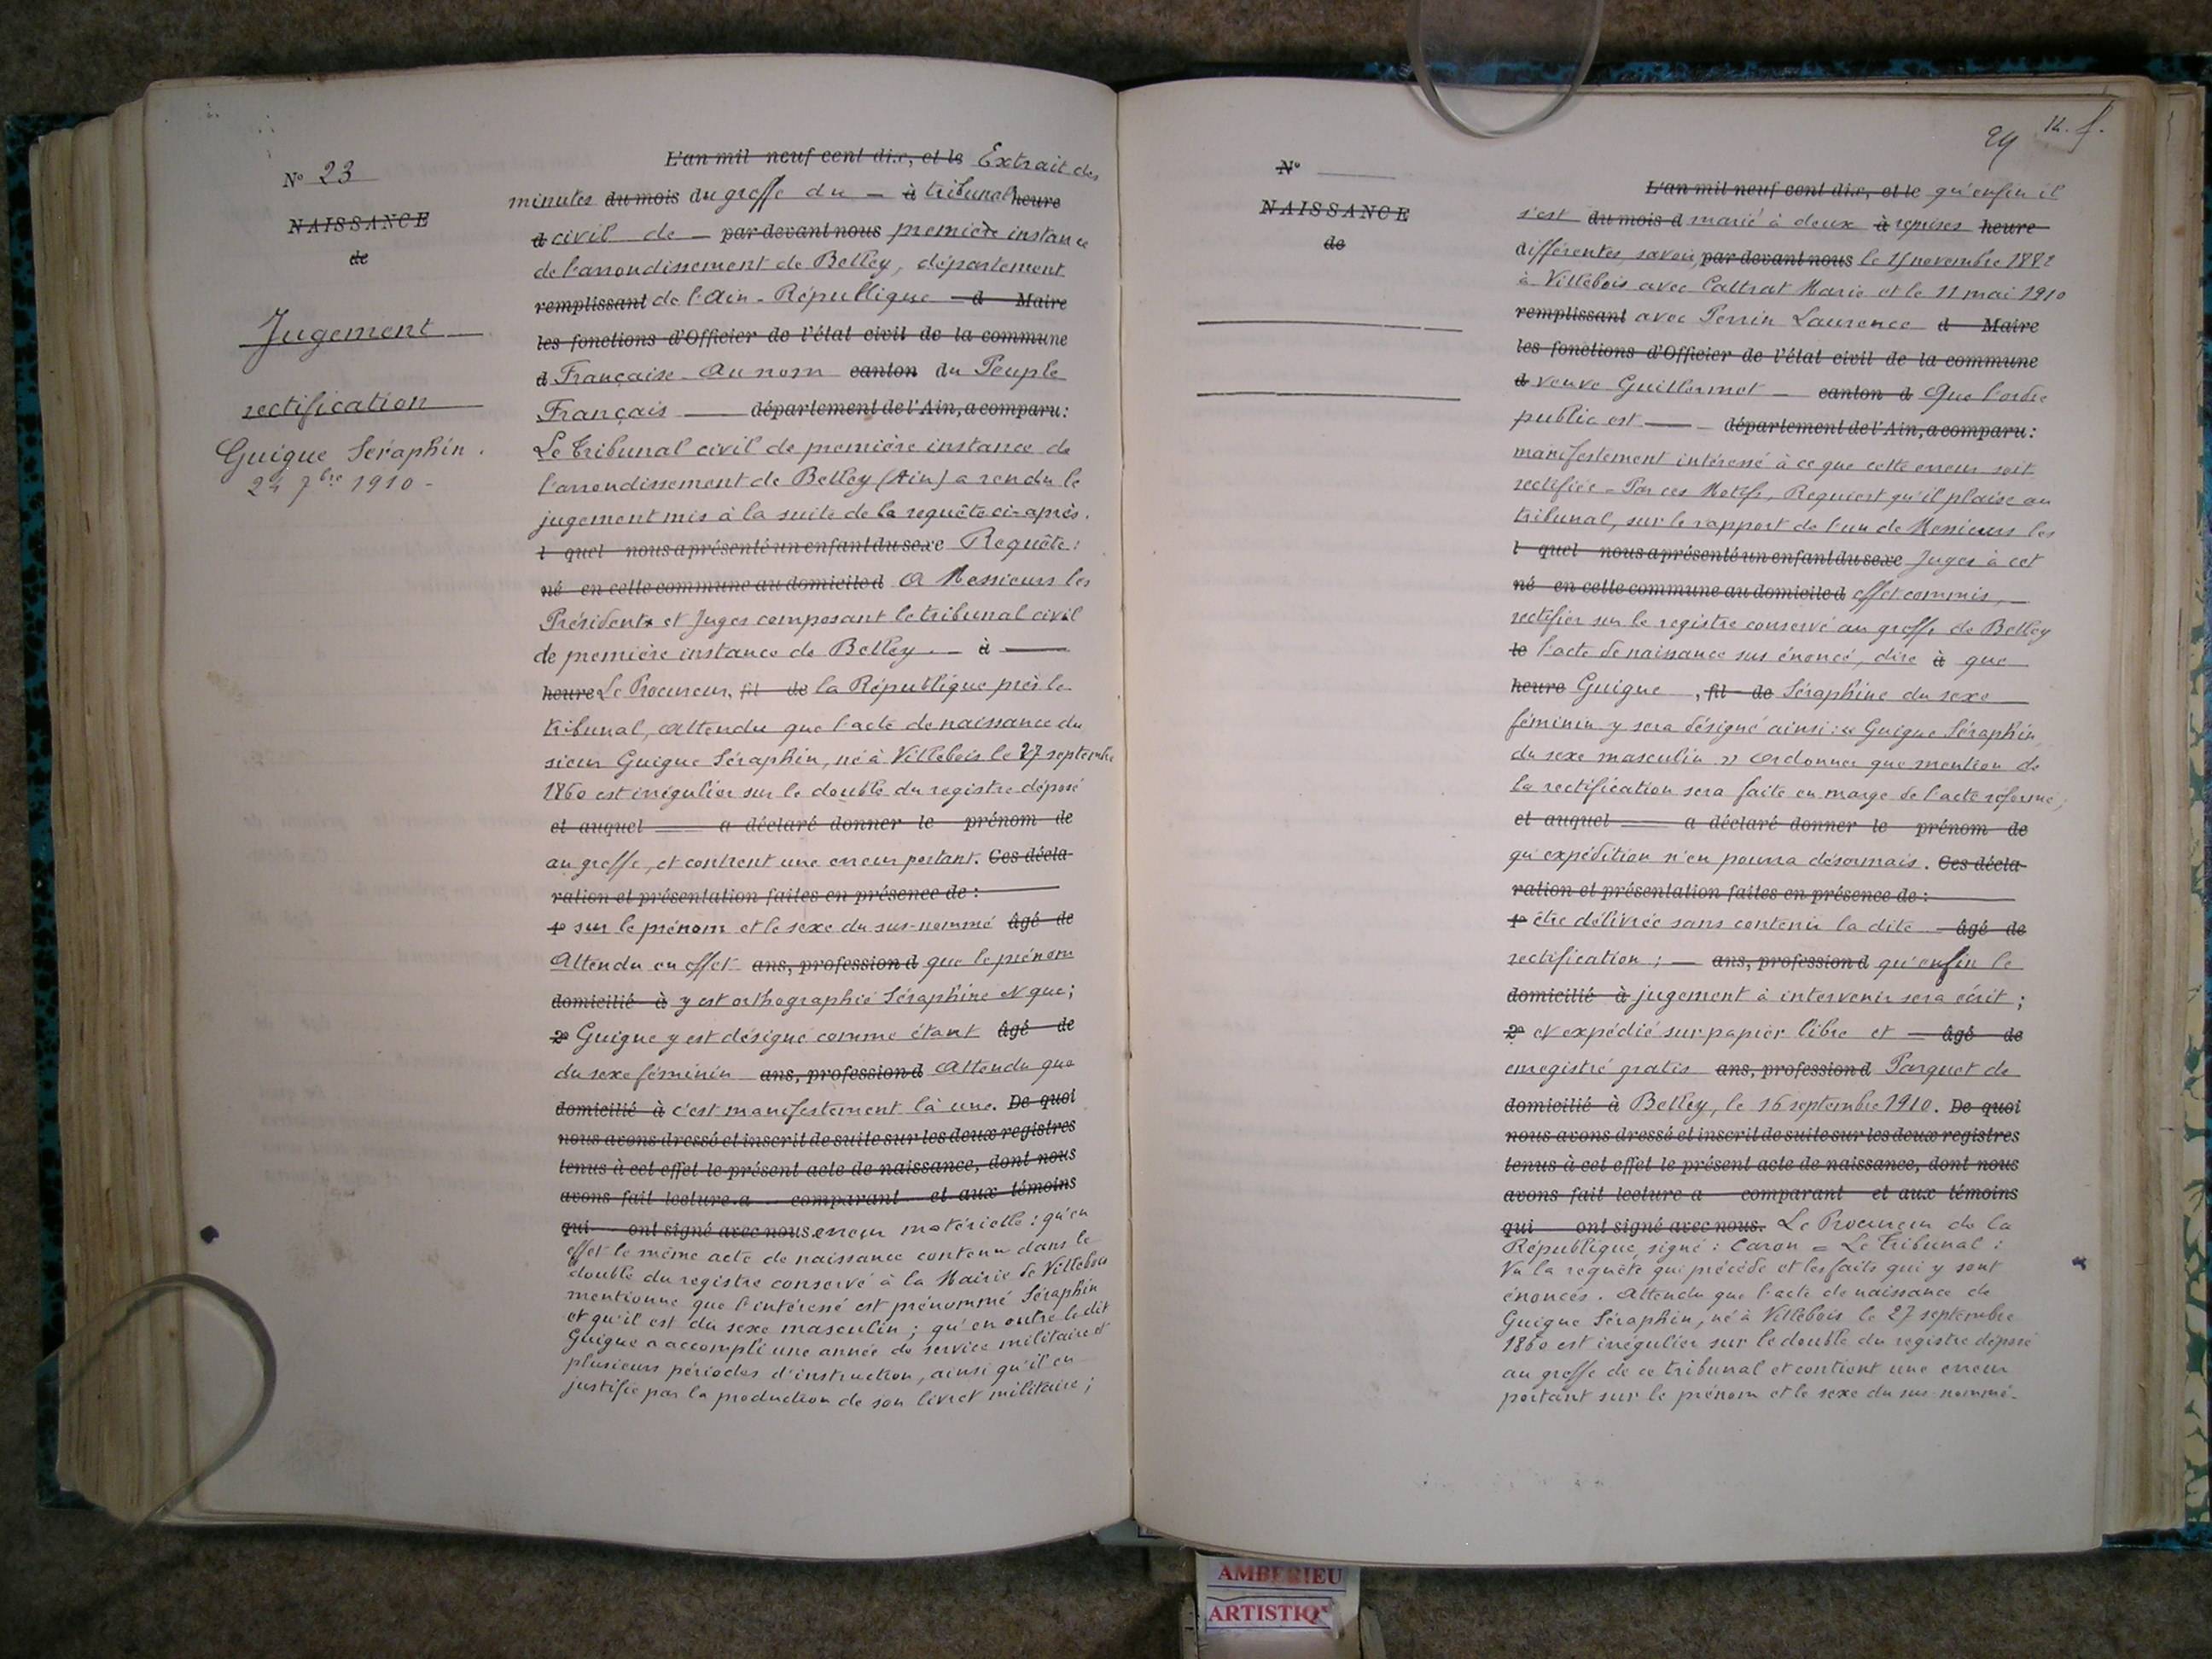 N° 23
NAISSANCE
de
Jugement
rectification
Guigue Séraphin.
24 7bre 1910 -
L'an mil neuf cent dix, et le Extrait des
minutes du mois du greffe du — à tribunal heure
d civil de — par devant nous première instance
de l'arrondissement de Belley, département
remplissant de l'Ain - République — d Maire
les fonctions d'Officier de l'état civil de la commune
d Française - Au nom canton du Peuple
Français — département de l'Ain, a comparu :
Le tribunal civil de première instance de
l'arrondissement de Belley (Ain) a rendu le
jugement mis à la suite de la requête ci-après.
l quel nous a présenté un enfant du sexe Requête :
né en cette commune au domicile d A Messieurs les
Présidents et Juges composant le tribunal civil
de première instance de Belley. — à —
heure Le Procureur, fil de la République près le
tribunal, Attendu que l'acte de naissance du
sieur Guigue Séraphin, né à Villebois le 27 septembre
1860 est irrégulier sur le double du registre déposé
et auquel — a déclaré donner le prénom de
au greffe, et contient une erreur portant. Ces décla-
ration et présentation faites en présence de : —
1° sur le prénom et le sexe du sus-nommé âgé de
Attendu en effet ans, profession d que le prénom
domicilié à y est orthographié Séraphine et que ;
2° Guigue y est désigné comme étant âgé de
du sexe féminin ans, profession d Attendu que
domicilié à c'est manifestement là une. De quoi
nous avons dressé et inscrit de suite sur les deux registres
tenus à cet effet le présent acte de naissance, dont nous
avons fait lecture a comparant et aux témoins
qui ont signé avec nous. erreur matérielle : qu'en
effet le même acte de naissance contenu dans le
double du registre conservé à la Mairie de Villebois
mentionne que l'intéressé est prénommé Séraphin
et qu'il est du sexe masculin ; qu'en outre le dit
Guigue a accompli une année de service militaire et
plusieurs périodes d'instruction, ainsi qu'il en
justifie par la production de son livret militaire ;
24
N°
NAISSANCE
de
L'an mil neuf cent dix, et le qu'enfin il
s'est du mois d marié à deux à reprises heure
différentes, savoir, par devant nous le novembre 1882
à Villebois avec Cattrat Marie et le 11 mai 1910
remplissant avec Perrin Laurence d Maire
les fonctions d'Officier de l'état civil de la commune
d veuve Guillermet — canton d Que l'ordre
public est — — département de l'Ain, a comparu :
manifestement intéressé à ce que cette erreur soit
rectifiée - Par ces Motifs, Requiert qu'il plaise au
tribunal, sur le rapport de l'un de Messieurs les
l quel nous a présenté un enfant du sexe Juges à cet
né en cette commune au domicile d effet commis, —
rectifier sur le registre conservé au greffe de Belley
le l'acte de naissance sus énoncé, dire à que
heure Guigue , fil de Séraphine du sexe
féminin y sera désigné ainsi : « Guigue Séraphin
du sexe masculin » ordonner que mention de
la rectification sera faite en marge de l'acte réformé ;
et auquel — a déclaré donner le prénom de
qu'expédition n'en pourra désormais. Ces décla-
ration et présentation faites en présence de : —
1° être délivrée sans contenir la dite — âgé de
rectification ; — ans, profession d qu'enfin le
domicilié à jugement à intervenir sera écrit ;
2° et expédié sur papier libre et — âgé de
enregistré gratis ans, profession d Parquet de
domicilié à Belley, le 16 septembre 1910. De quoi
nous avons dressé et inscrit de suite sur les deux registres
tenus à cet effet le présent acte de naissance, dont nous
avons fait lecture a comparant et aux témoins
qui ont signé avec nous. Le Procureur de la
République, signé : Caron = Le tribunal :
Vu la requête qui précède et les faits qui y sont
énoncés. Attendu que l'acte de naissance de
Guigue Séraphin, né à Villebois le 27 septembre
1860 est irrégulier sur le double du registre déposé
au greffe de ce tribunal et contient une erreur
portant sur le prénom et le sexe du sus-nommé -
AMBERIEU
ARTISTIQ